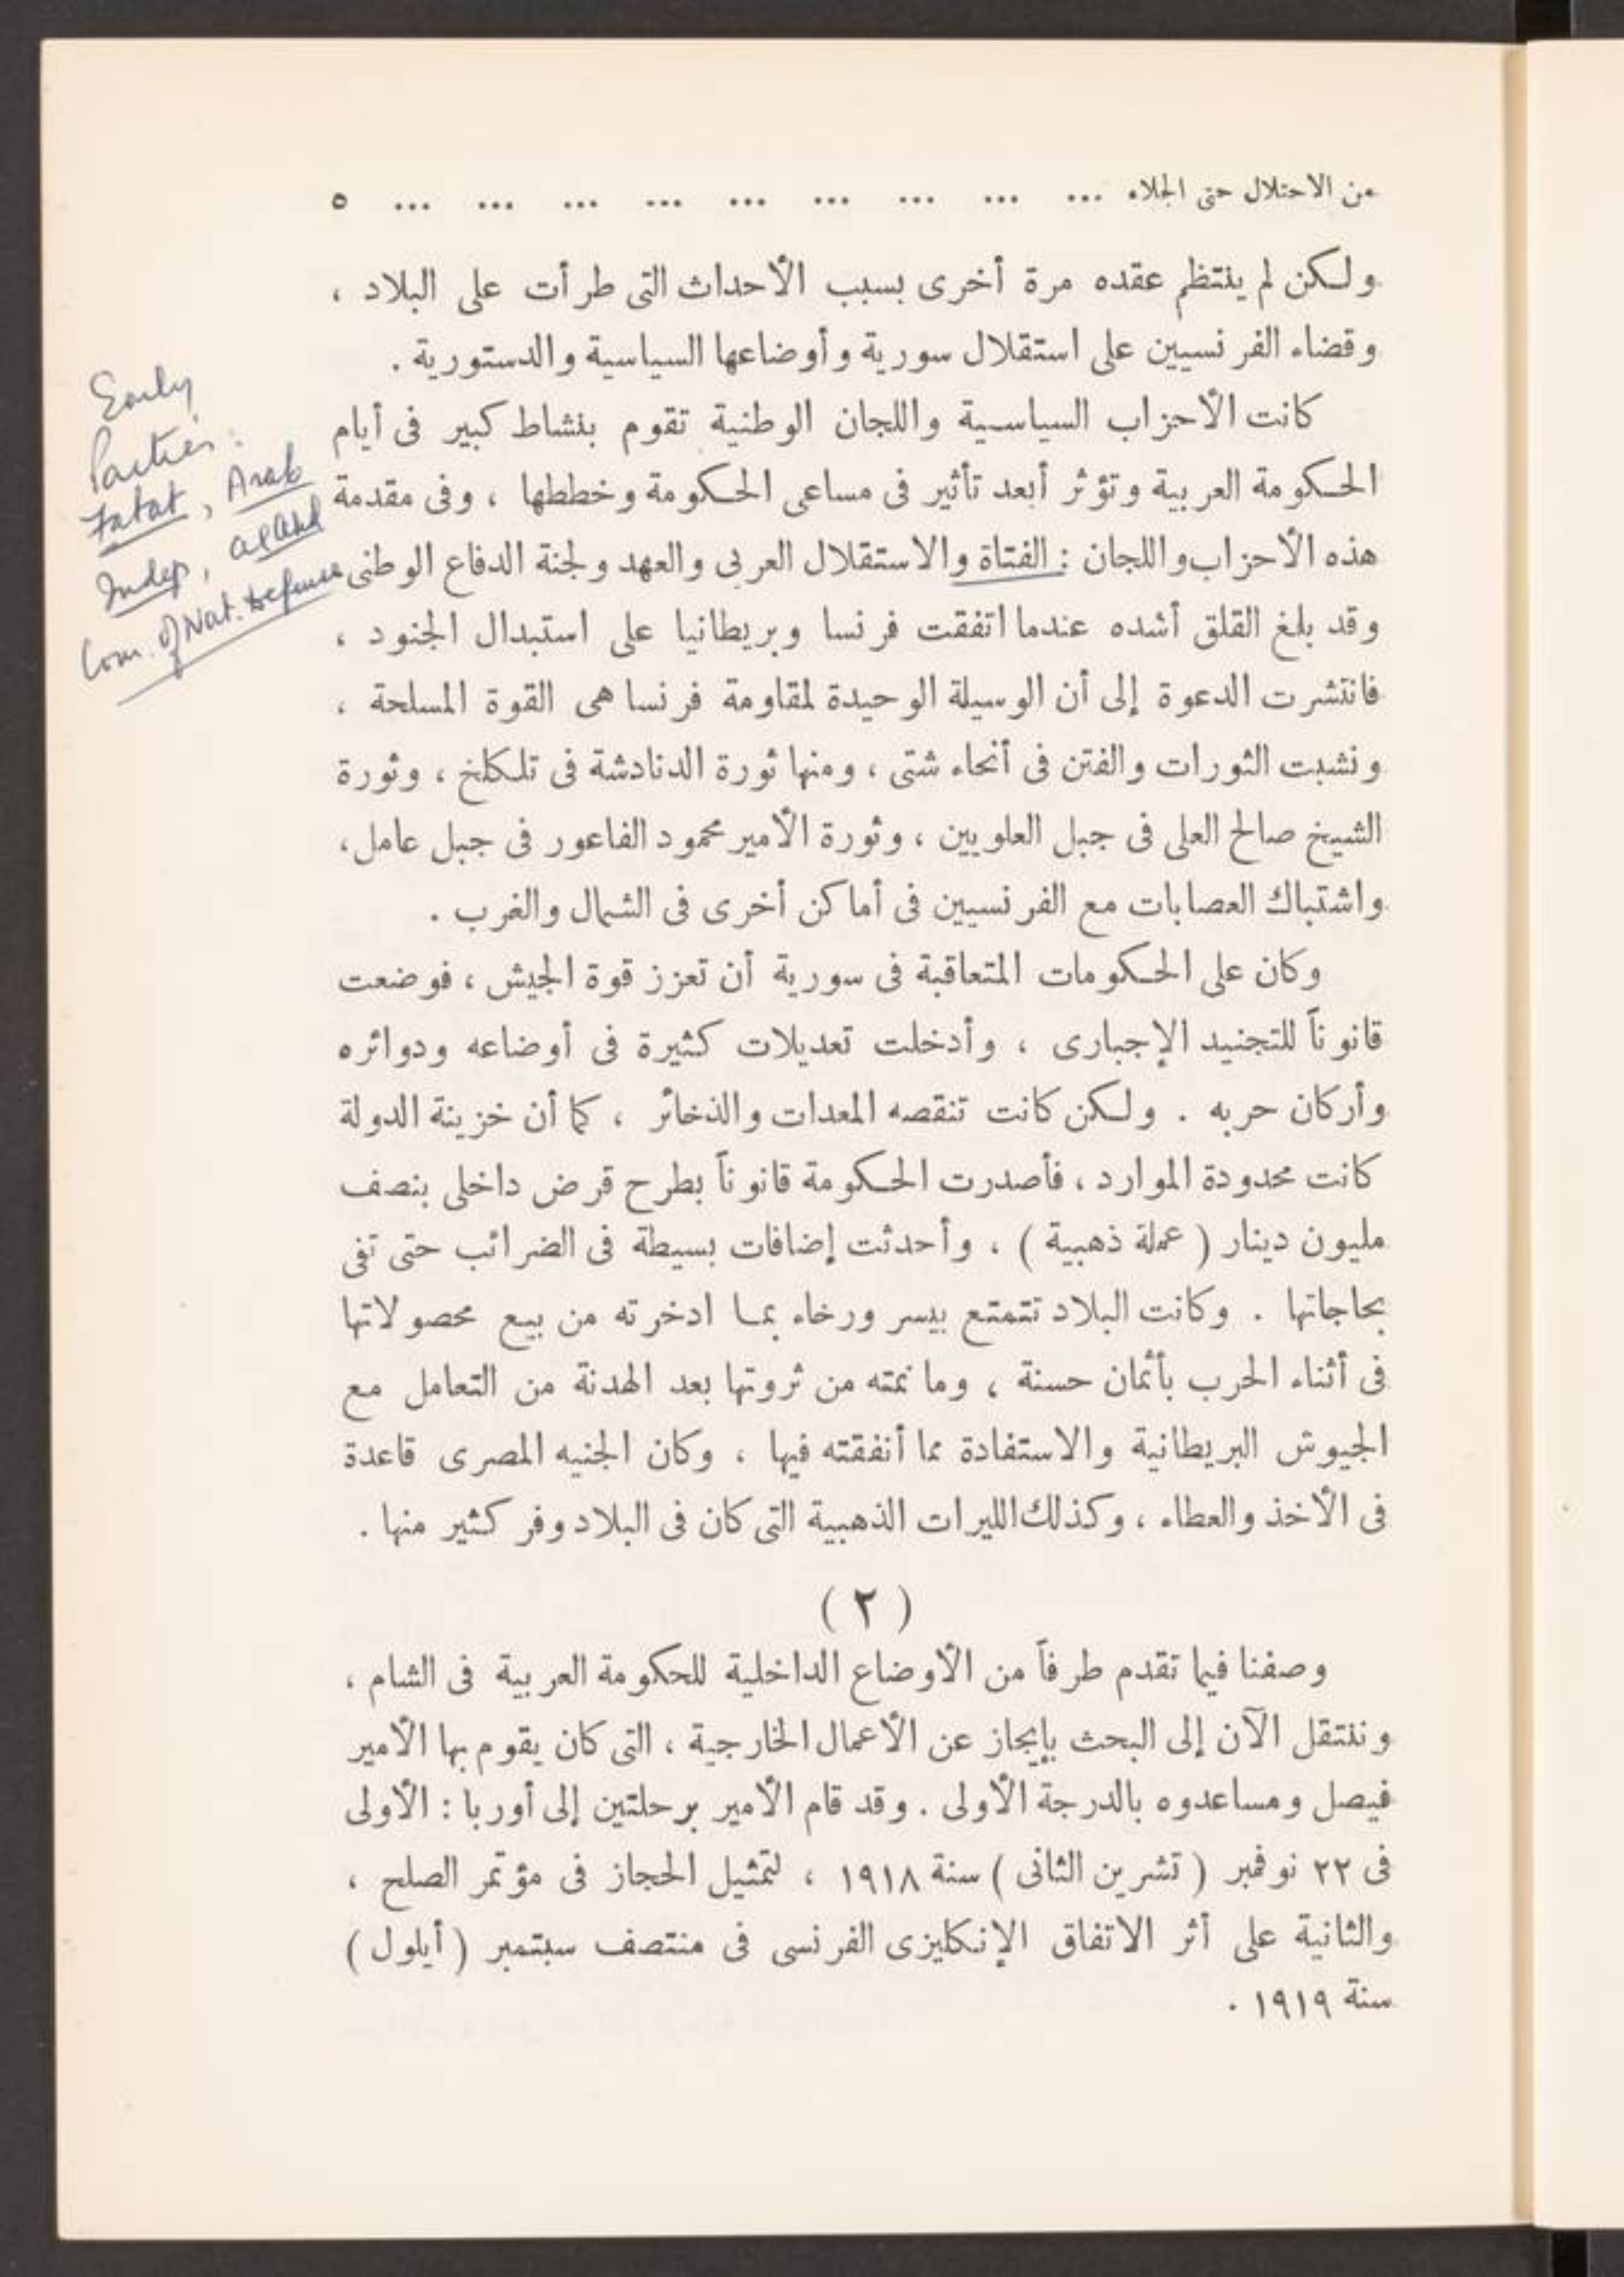 من الاحتلال حتى الجلاء ... ... ... ... ... ... ... ... ... ٥
ولكن لم ينتظم عقده مرة أخرى بسبب الأحداث التى طرأت على البلاد ،
وقضاء الفرنسيين على استقلال سورية وأوضاعها السياسية والدستورية .
كانت الأحزاب السياسية واللجان الوطنية تقوم بنشاط كبير فى أيام
الحكومة العربية وتؤثر أبعد تأثير فى مساعى الحكومة وخططها ، وفى مقدمة
هذه الأحزاب واللجان : الفتاة والاستقلال العربى والعهد ولجنة الدفاع الوطنى
وقد بلغ القلق أشده عندما اتفقت فرنسا وبريطانيا على استبدال الجنود ،
فانتشرت الدعوة إلى أن الوسيلة الوحيدة لمقاومة فرنسا هى القوة المسلحة ،
ونشبت الثورات والفتن فى أنحاء شتى ، ومنها ثورة الدنادشة فى تلكلخ ، وثورة
الشيخ صالح العلى فى جبل العلويين ، وثورة الأمير محمود الفاعور فى جبل عامل ،
واشتباك العصابات مع الفرنسيين فى أماكن أخرى فى الشمال والغرب .
وكان على الحكومات المتعاقبة فى سورية أن تعزز قوة الجيش ، فوضعت
قانوناً للتجنيد الإجبارى ، وأدخلت تعديلات كثيرة فى أوضاعه ودوائره
وأركان حربه . ولكن كانت تنقصه المعدات والذخائر ، كما أن خزينة الدولة
كانت محدودة الموارد ، فأصدرت الحكومة قانوناً بطرح قرض داخلى بنصف
مليون دينار ( عملة ذهبية ) ، وأحدثت إضافات بسيطة فى الضرائب حتى تفى
بحاجاتها . وكانت البلاد تتمتع بيسر ورخاء بما ادخرته من بيع محصولاتها
فى أثناء الحرب بأثمان حسنة ، وما نمته من ثروتها بعد الهدنة من التعامل مع
الجيوش البريطانية والاستفادة مما أنفقته فيها ، وكان الجنيه المصرى قاعدة
فى الأخذ والعطاء ، وكذلك الليرات الذهبية التى كان فى البلاد وفر كثير منها .
( ٢ )
وصفنا فيما تقدم طرفاً من الأوضاع الداخلية للحكومة العربية فى الشام ،
وننتقل الآن إلى البحث بإيجاز عن الأعمال الخارجية ، التى كان يقوم بها الأمير
فيصل ومساعدوه بالدرجة الأولى . وقد قام الأمير برحلتين إلى أوربا : الأولى
فى ٢٢ نوفمبر ( تشرين الثانى ) سنة ١٩١٨ ، لتمثيل الحجاز فى مؤتمر الصلح ،
والثانية على أثر الاتفاق الإنكليزى الفرنسى فى منتصف سبتمبر ( أيلول )
سنة ١٩١٩ .
Early
Parties:
Fatat, Arab
Indep, al Ahd
Com. of Nat. Defense